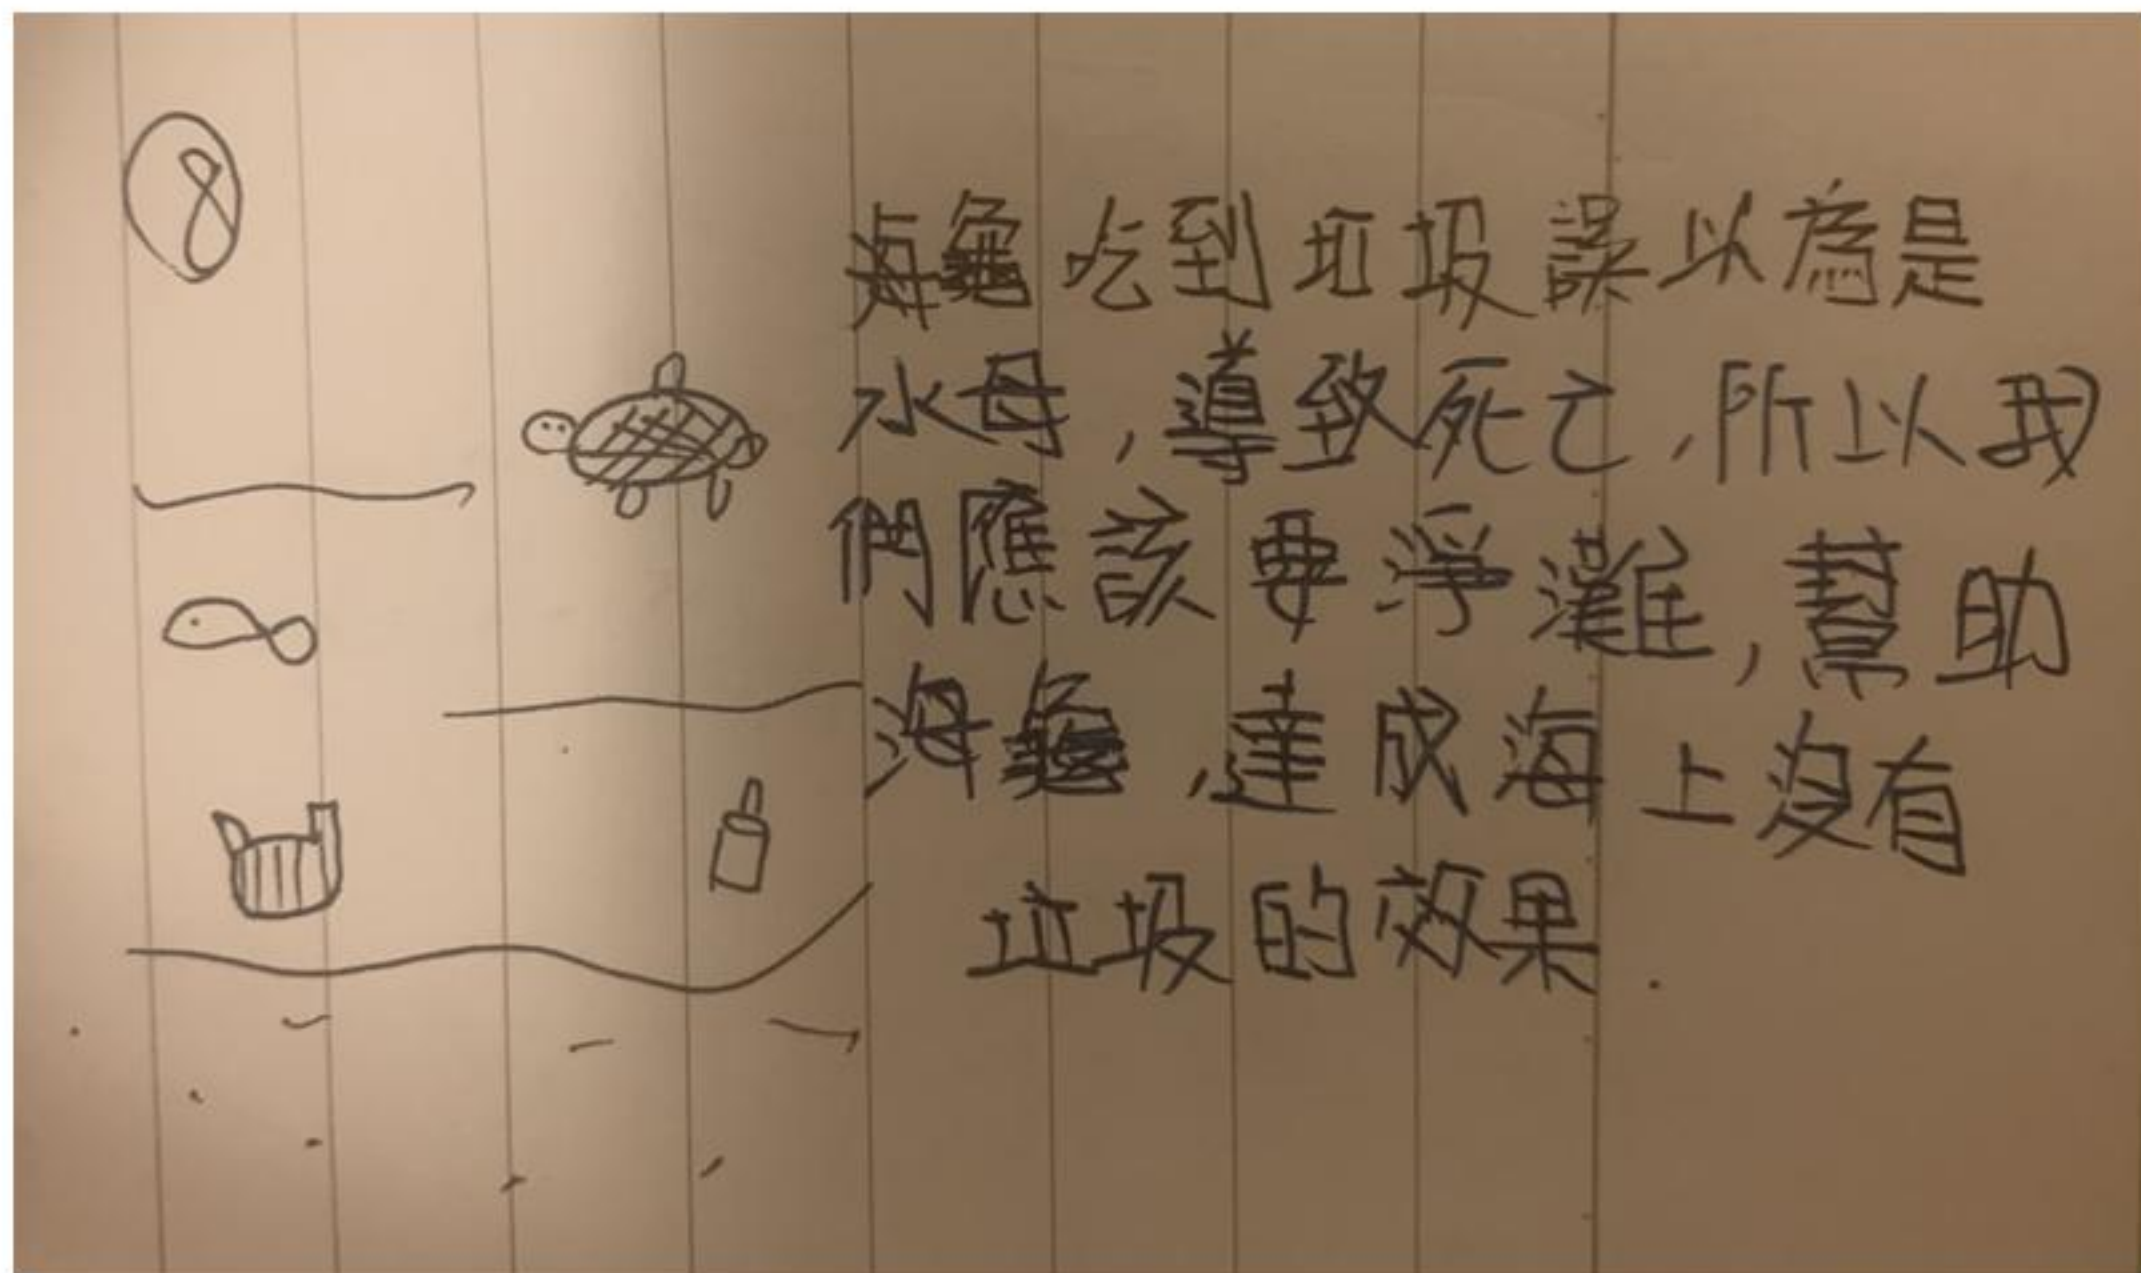 ⑧
海龜吃到垃圾誤以為是
水母,導致死亡,所以我
們應該要淨灘,幫助
海龜,達成海上沒有
垃圾的效果.